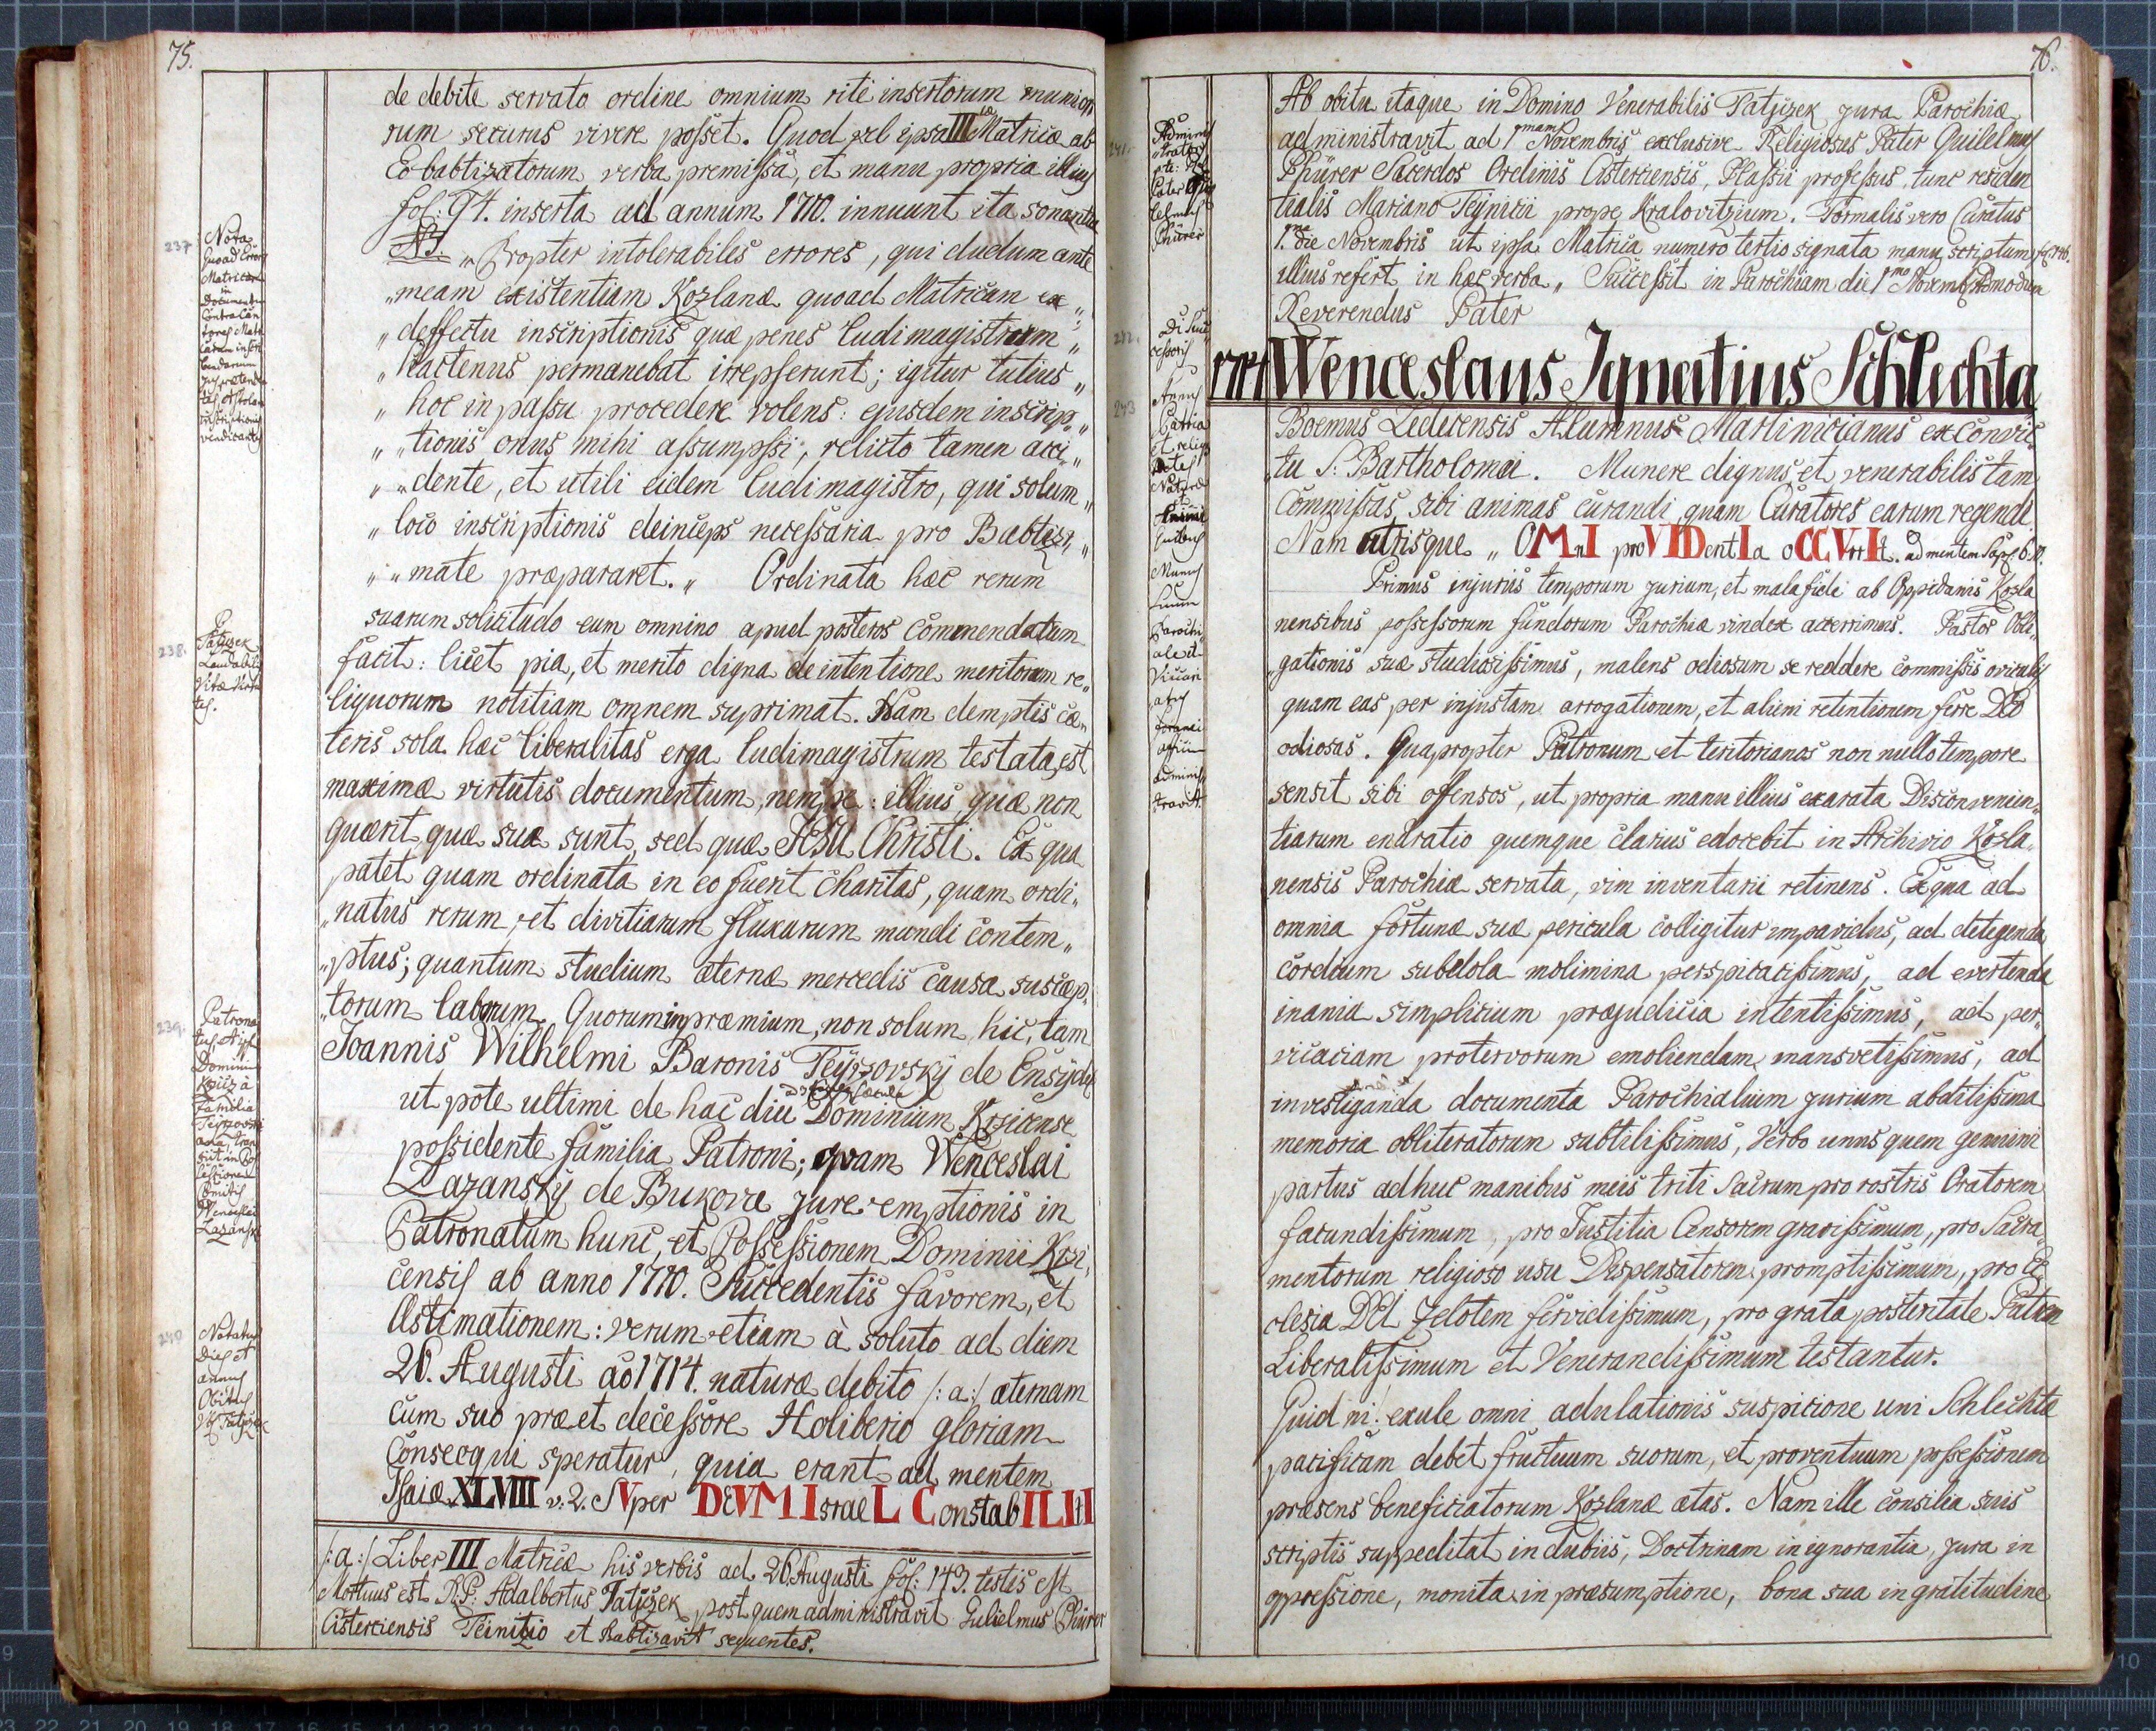 75.
de debite servato ordine omnium rite insertorum munion
rum securus vivere posset. Quod vel ipsa III Matrica ab
Eo babtizatorum verba premissa, et manu propria illius
fol: 94. inserta ad annum 1710. innuunt ita sonantia
NB. „ Propter intolerabiles errores, qui dudum ante
„ meam existentiam Kozlanæ quoad Matricam ex „
„ deffectu inscriptionis quæ penes Ludimagistrum „
„ hactenus permanebat irrepserunt; igitur tutius „
„ hoc in passu procedere volens: ejusdem inscrip„
„ „tionis onus mihi assumpssi; relicto tamen acci„
„ „dente, et utili eidem Ludimagistro, qui solum „
„ loco inscriptionis deinceps necessaria pro Babtis„
„ „mate præpararet. „ Ordinata hæc rerum
suarum solicitudo eum omnino apud posteros commendatum
facit: licet pia, et merito digna de intentione meritorum re„
liquorum notitiam omnem suprimat. Nam demptis cæ„
teris sola hæc liberalitas erga ludimagistrum testata est
maximæ virtutis documentum, nempe: illius, quæ non
quærit, quæ sua sunt, sed quæ JESU Christi. Ex qua
patet quam ordinata in eo fuerit Charitas, quam ordi„
„natus rerum, et divitiarum fluxarum mundi contem„
„ptus; quantum studium æternæ mercedis causa suscep„
„torum laborum. Quorum in præmium, non solum hic, tam
Joannis Wilhelmi Baronis Teyrzovsky de Ensydl
ut pote ultimi de hac diu Dominium Krzicense
possidente familia Patroni; quam Wenceslai
Lazansky de Bukova jure emptionis in
Patronatum hunc, et Possessionem Dominii Krzi„
censis ab anno 1710. Succedentis favorem, et
Æstimationem: verum etiam à soluto ad diem
26. Augusti aõ 1714. naturæ debito /: a :/ æternam
cum suo præ et decessore Holiberio gloriam
Consecqui speratur, quia erant ad mentem
Isaiæ XLVIII v: 2. SVper DEVM IsraeL ConstabILItI
/: a :/ Liber III Matricæ his verbis ad 26 Augusti fol: 143. testis est
Mortuus est R.P. Adalbertus Tatjzek, post quem administravit Gulielmus Phürer
Cisterciensis Teinitio et Babtisavit sequentes.
237
Nota
Quoad Errores
Matricæ
in
Documentum
Contra Can
tores Matri
cam inscri
bendarum
jus prætenden
tes
vendicantes
238.
P.
Tatjzek
Laudabilis
Vitæ Virtu
tes.
239.
Patrona
tus
Dominii
Krzicz à
Familia
Teyrzovski
ana tran
siit in Pos
sessionem
Comitis
Wenceslai
Lazansky
240
Notatur
Dies et
annus
Obitus
Tatjzek
76.
Ab obitu itaque in Domino Venerabilis Tatjzek jura Parochiæ
administravit ad 1mam Novembris exclusive Religiosus Pater Guilelmus
Phürer Sacerdos Ordinis Cisterciensis, Plassii professus, tunc residen
tialis Mariano Teynicii prope Kralovitzium. Formalis vero Curatus
1.ma die Novembris ut ipsa Matrica numero tertio signata manu scriptum
illius refert in hæc verba „ Successit in Parochiam die 1mo Novemb Admodum
Reverendus Pater
1714 Wenceslaus Ignatius Schlechta
Boemus Ledecensis Alumnus Martinicianus ex Convic„
„tu S: Bartholomæi. Munere dignus, et venerabilis tam
Commissas sibi animas curandi, quam Curatores earum regendi
Nam utrisque „ OMnI proVIDentIa oCCVrrIt. ad mentem Sap: 6.
Primus injuriis temporum jurium, et mala fide ab Oppidanis Kozla
nensibus possessorum fundorum Parochiæ vindex acerrimus. Pastor Obli„
„gationis suæ studiosissimus, malens odiosum se reddere commissis oviculis
quam eas per injustam arrogationem, et alieni retentionem ferre DEO
odiosas. Quapropter Patronum et teritorianos non nullo tempore
sensit sibi offensos, ut propria manu illius exarata Disconvenien„
tiarum enarratio quemque clarius edocebit in Archivio Kozla„
nensis Parochiæ servata, vim inventarii retinens. Ex qua ad
omnia fortunæ suæ pericula colligitur impavidus, ad detegenda
cordium subdola molimina perspicacissimus, ad evertenda
inania simplicium præjudicia intentissimus, ad per„
vicaciam protervorum emoliendam mansvetissimus, ad
investiganda documenta Parochialium jurium abditissima
memoria obliteratorum subtilissimus, Verbo unus quem gemini
partus adhuc manibus meis triti Sacrum pro rostris Oratorem
facundissimum, pro Justitia Censorem gravissimum, pro Sacra„
mentorum religioso usu Dispensatorem promptissimum, pro Ec
clesia DEI Zelotem fervidissimum, pro grata posteritate Patrem
Liberalissimum et Venerandissimum testantur.
Quid ni! exule omni adulationis suspicione uni Schlechta
pacificam debet fructuum suorum, et proventuum possessionem
præsens beneficiatorum Kozlanæ ætas. Nam ille consilia suis
scriptis suppeditat in dubiis, Doctrinam in ignorantia, jura in
oppressione, monita in præsumptione, bona sua in gratitudine
241.
Adminis
trator
Pater Gui
lelmus
Phürer
242.
Di Suc
cessoris
243
Annus
Patria
et reliq
Naturæ
Animi
Munus
suum
Parochi
ale et
Vicari
atus
foranei
officium
adminis
travit